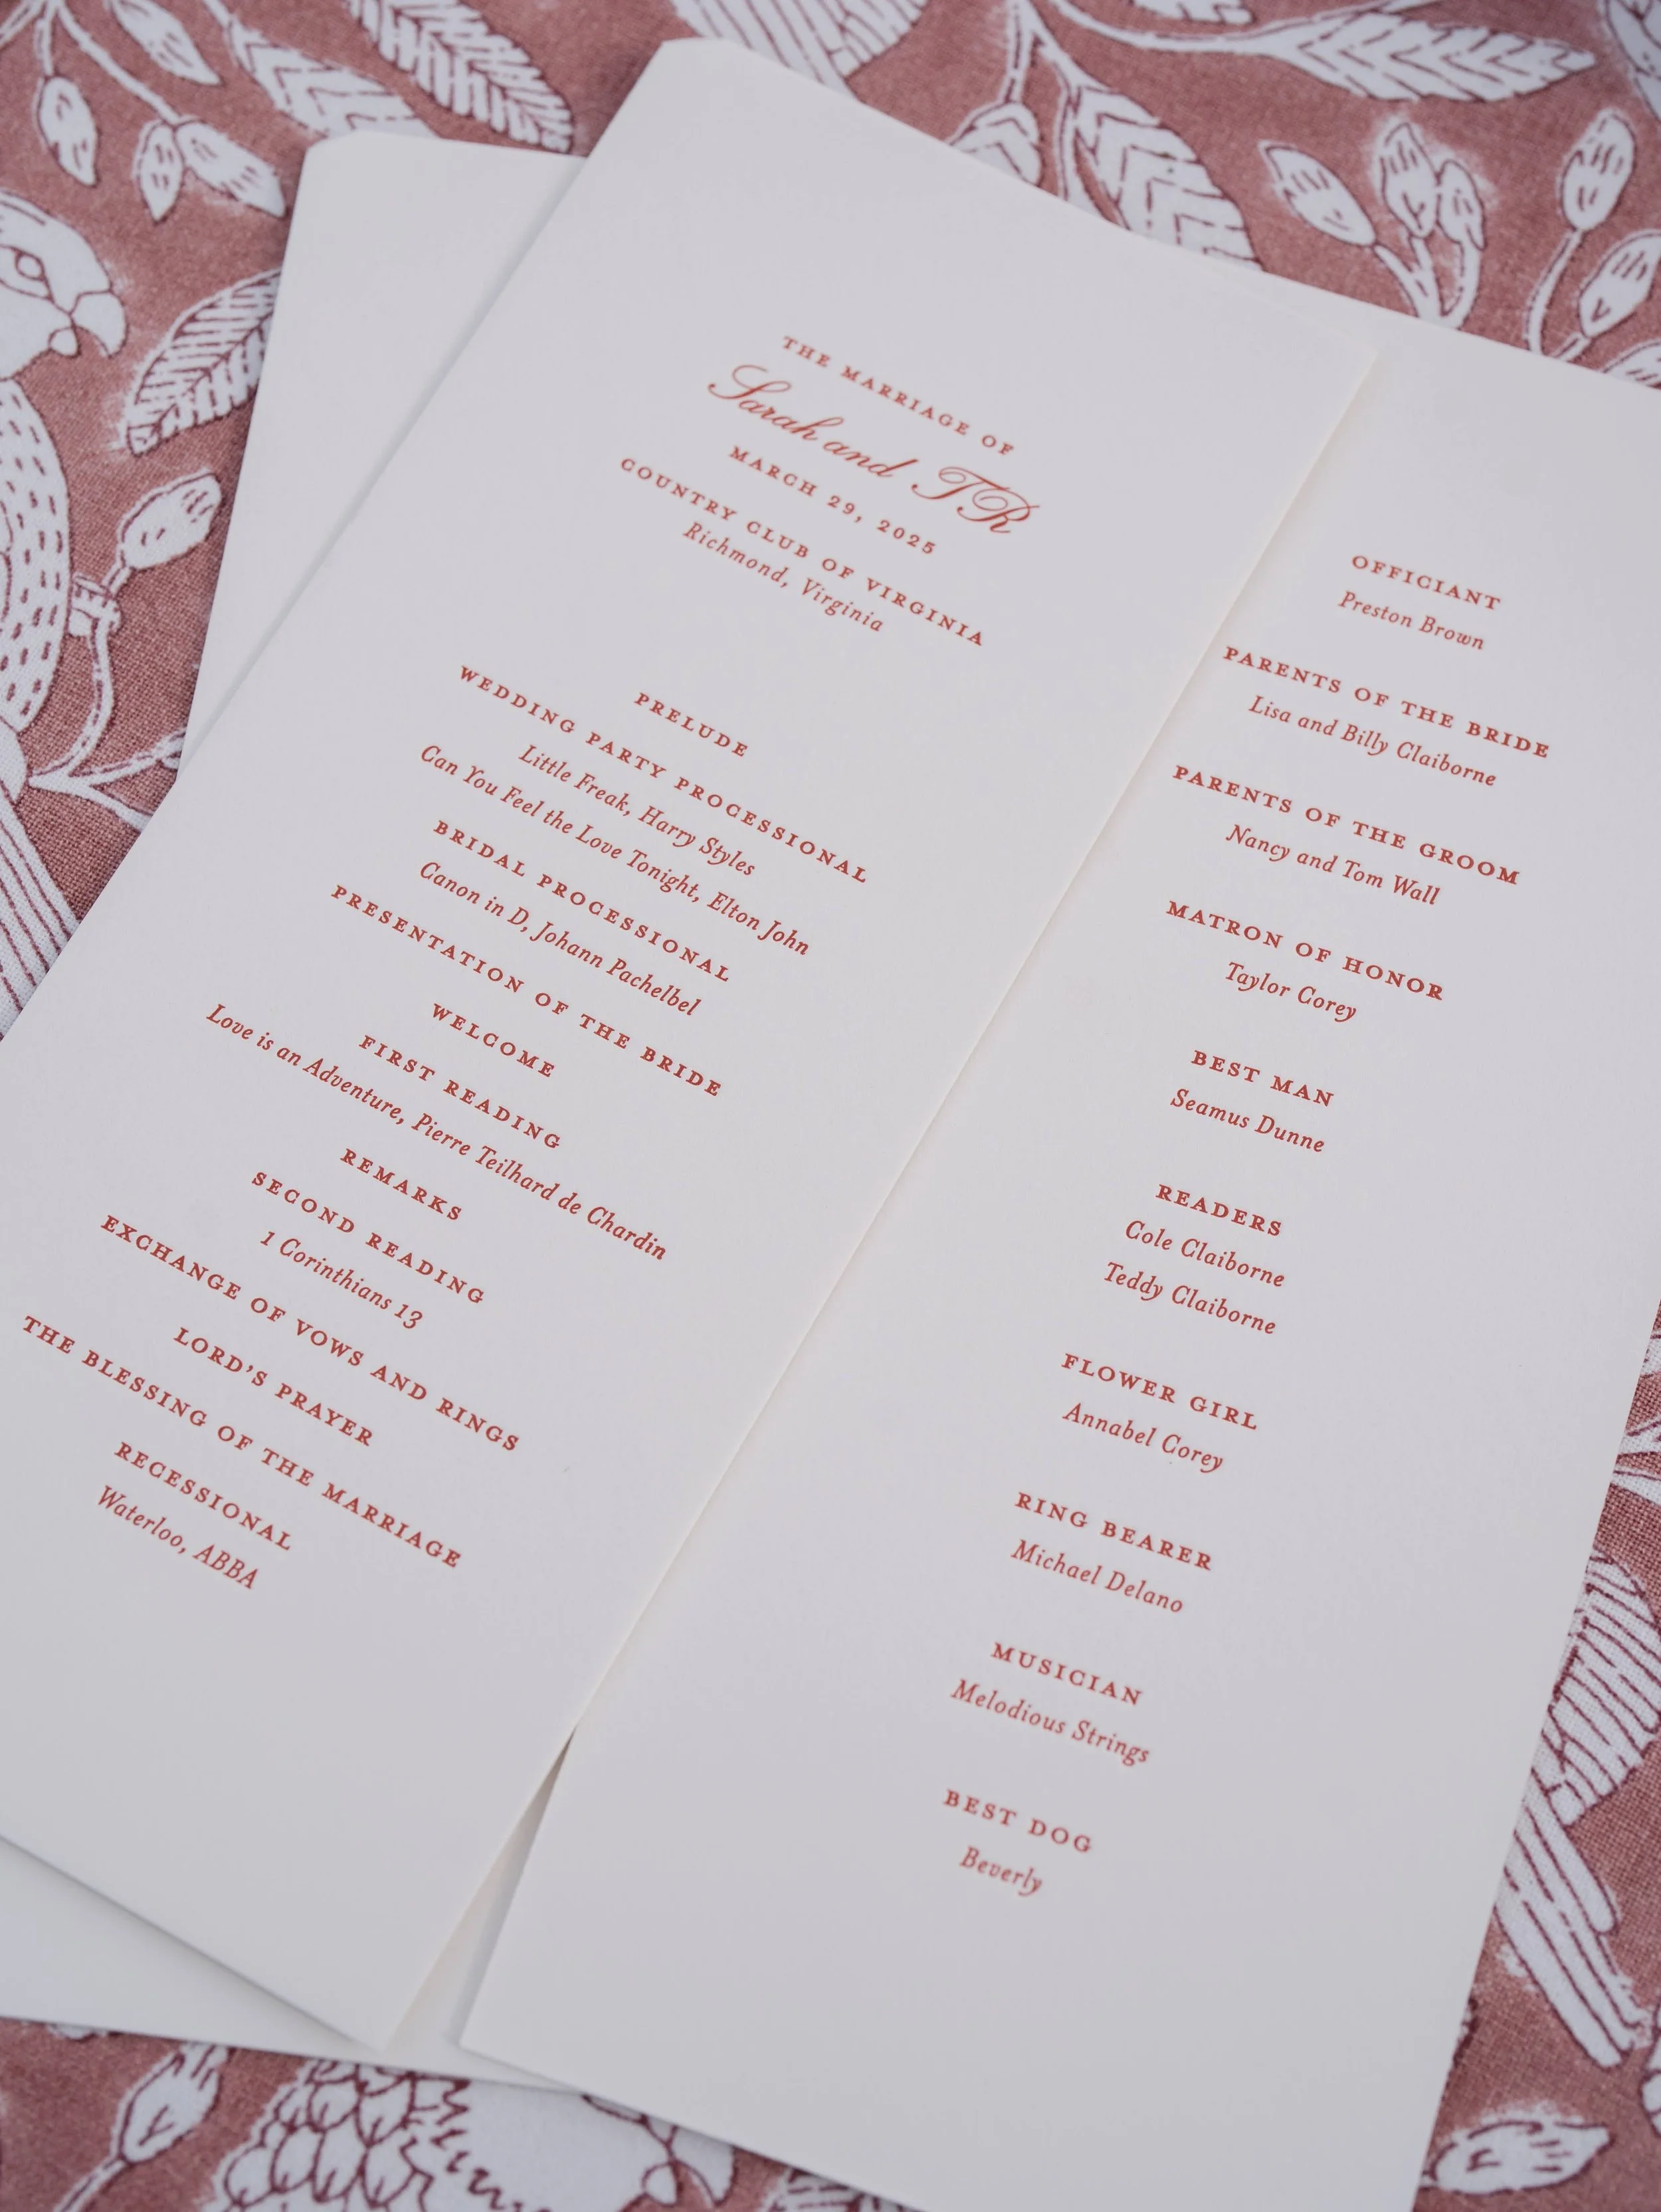 THE MARRIAGE OF
Sarah and TR
MARCH 29, 2025
COUNTRY CLUB OF VIRGINIA
Richmond, Virginia
PRELUDE
WEDDING PARTY PROCESSIONAL
Little Freak, Harry Styles
Can You Feel the Love Tonight, Elton John
BRIDAL PROCESSIONAL
Canon in D, Johann Pachelbel
PRESENTATION OF THE BRIDE
WELCOME
FIRST READING
Love is an Adventure, Pierre Teilhard de Chardin
REMARKS
SECOND READING
1 Corinthians 13
EXCHANGE OF VOWS AND RINGS
LORD'S PRAYER
THE BLESSING OF THE MARRIAGE
RECESSIONAL
Waterloo, ABBA
OFFICIANT
Preston Brown
PARENTS OF THE BRIDE
Lisa and Billy Claiborne
PARENTS OF THE GROOM
Nancy and Tom Wall
MATRON OF HONOR
Taylor Corey
BEST MAN
Seamus Dunne
READERS
Cole Claiborne
Teddy Claiborne
FLOWER GIRL
Annabel Corey
RING BEARER
Michael Delano
MUSICIAN
Melodious Strings
BEST DOG
Beverly